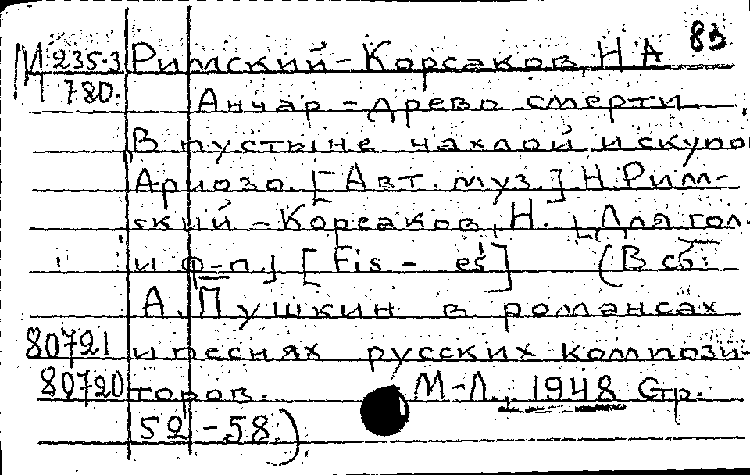 83
М 235-3 Римский-Корсаков, Н А
780. Анчар - древо смерти
В пустыне чахлой и скупо
Ариозо. [Авт. муз.] Н. Рим-
ский-Корсаков, Н. [Для гол.
и ф-п.] [Fis - es¹] (В сб:
А. Пушкин в романсах
80721 и песнях русских компози-
80720 торов. М-Л., 1948 Стр.
52-58.)